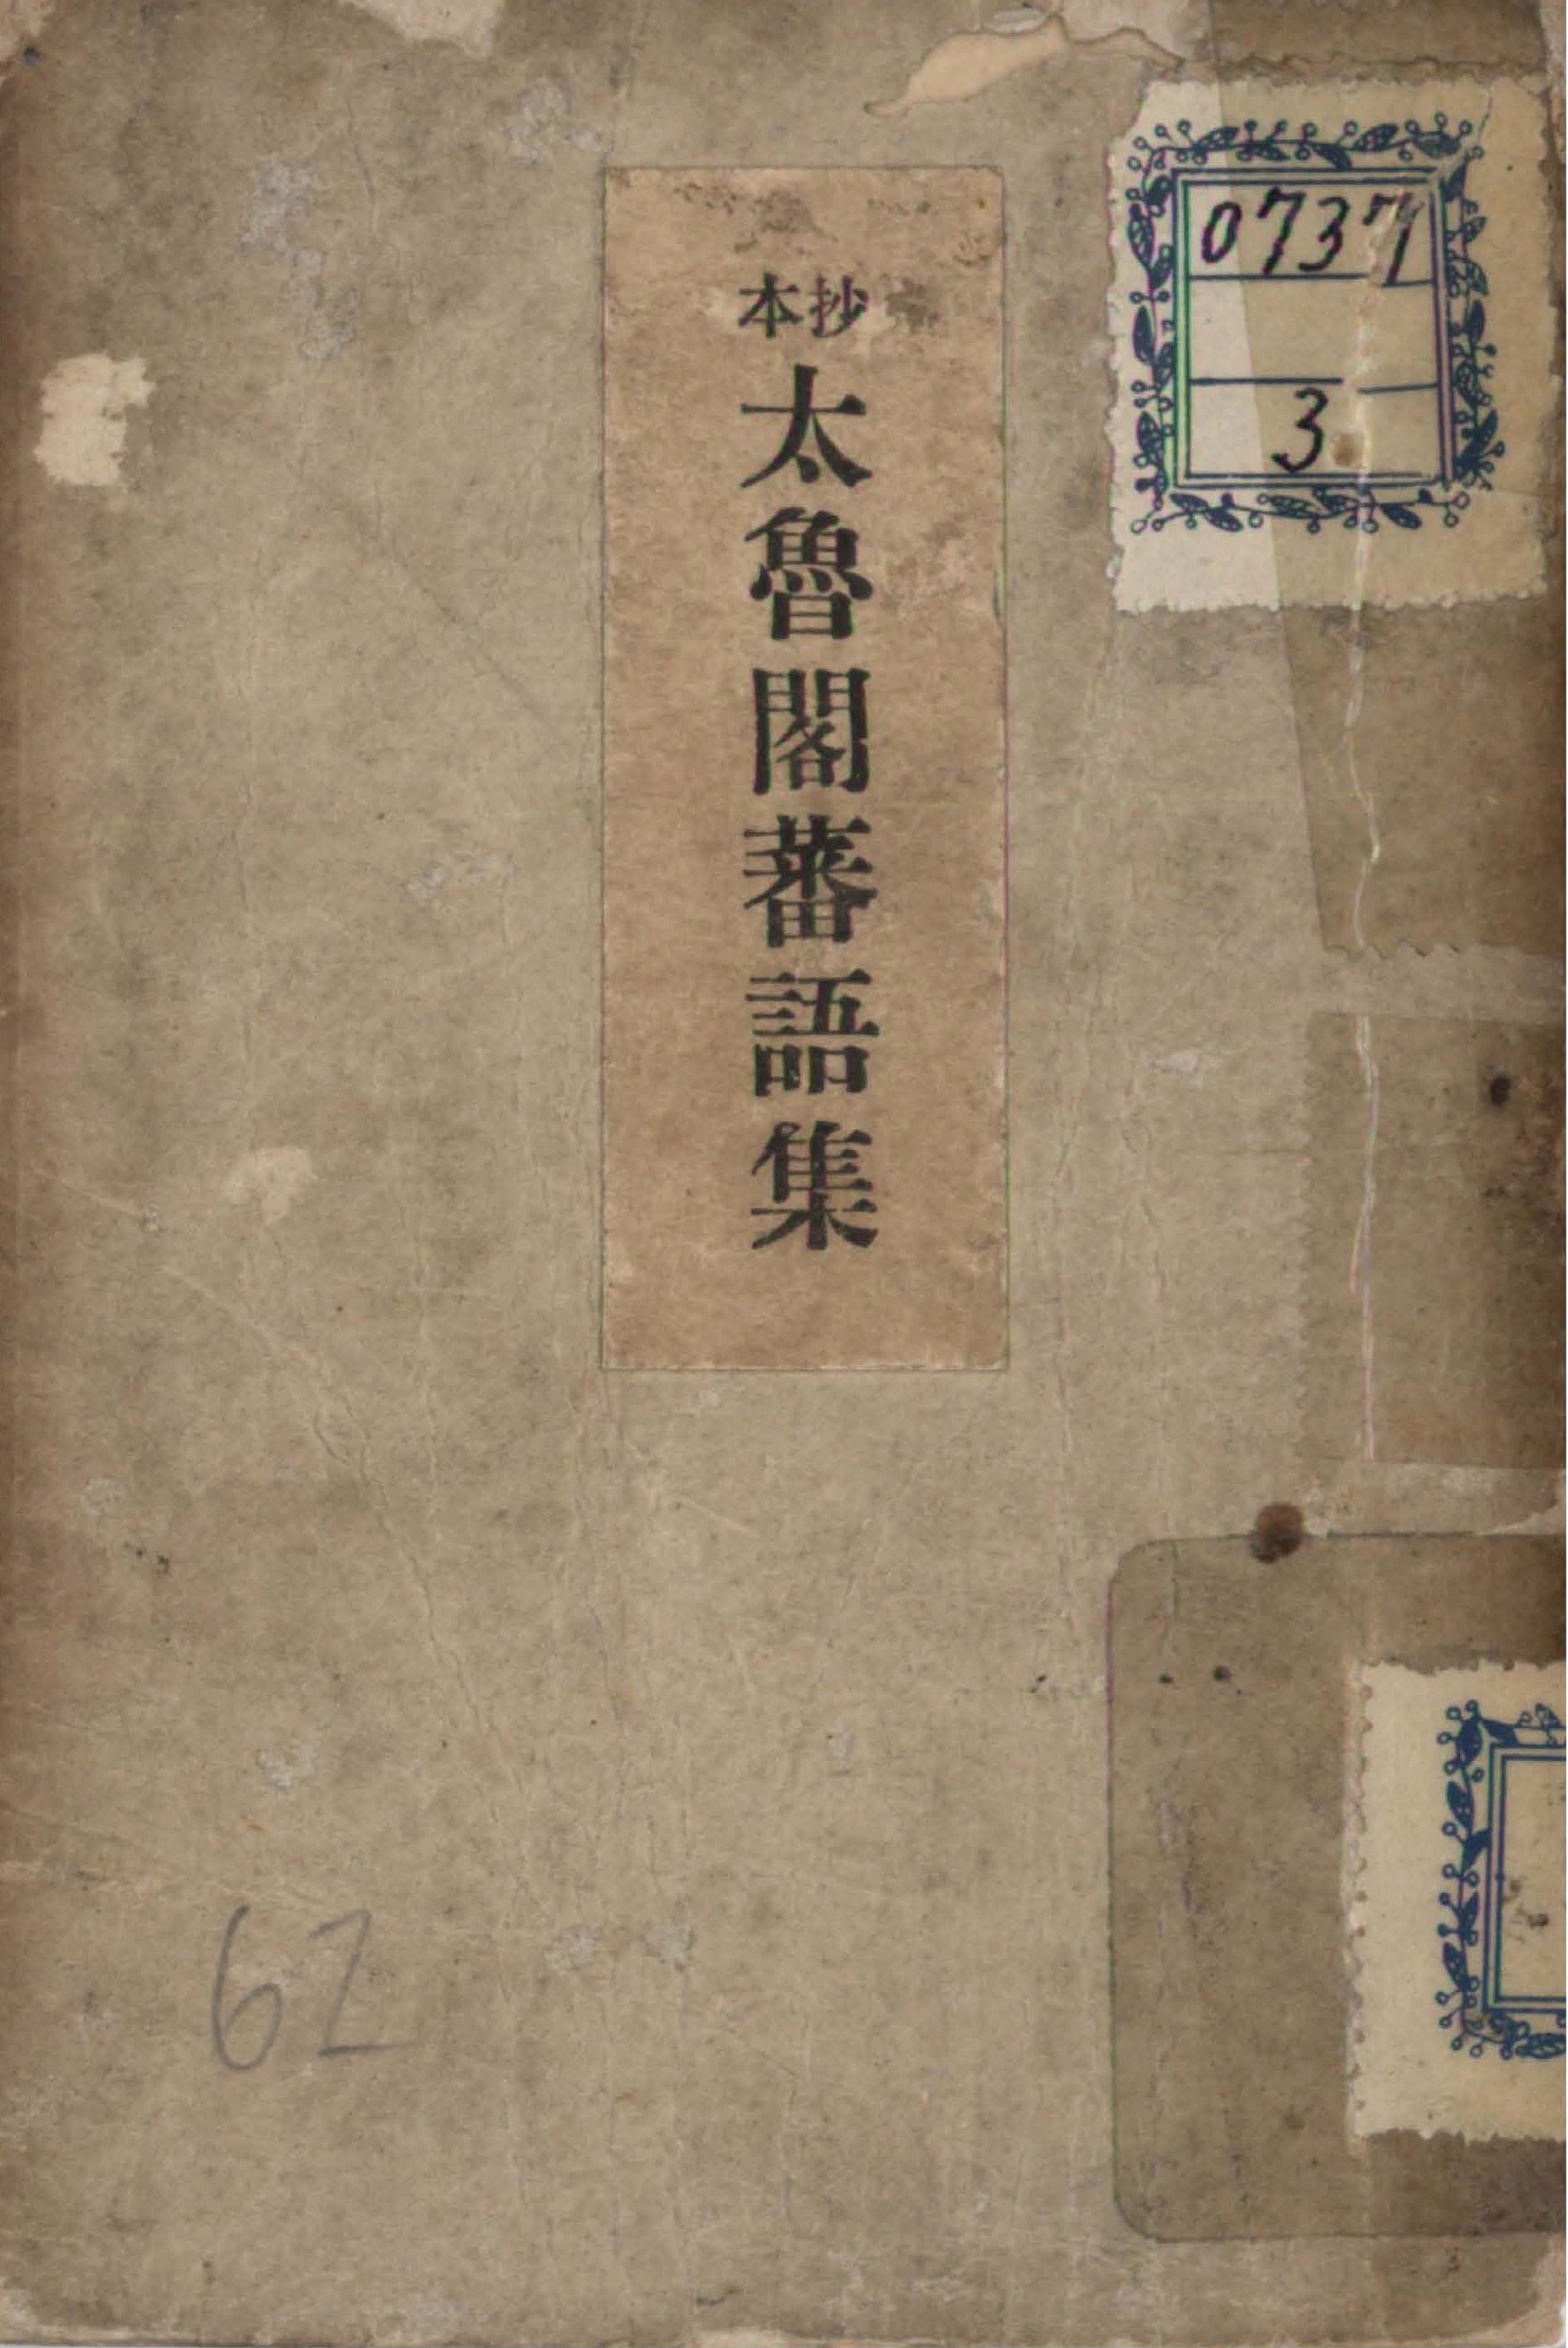 抄本
太魯閣蕃語集
0737
3
62